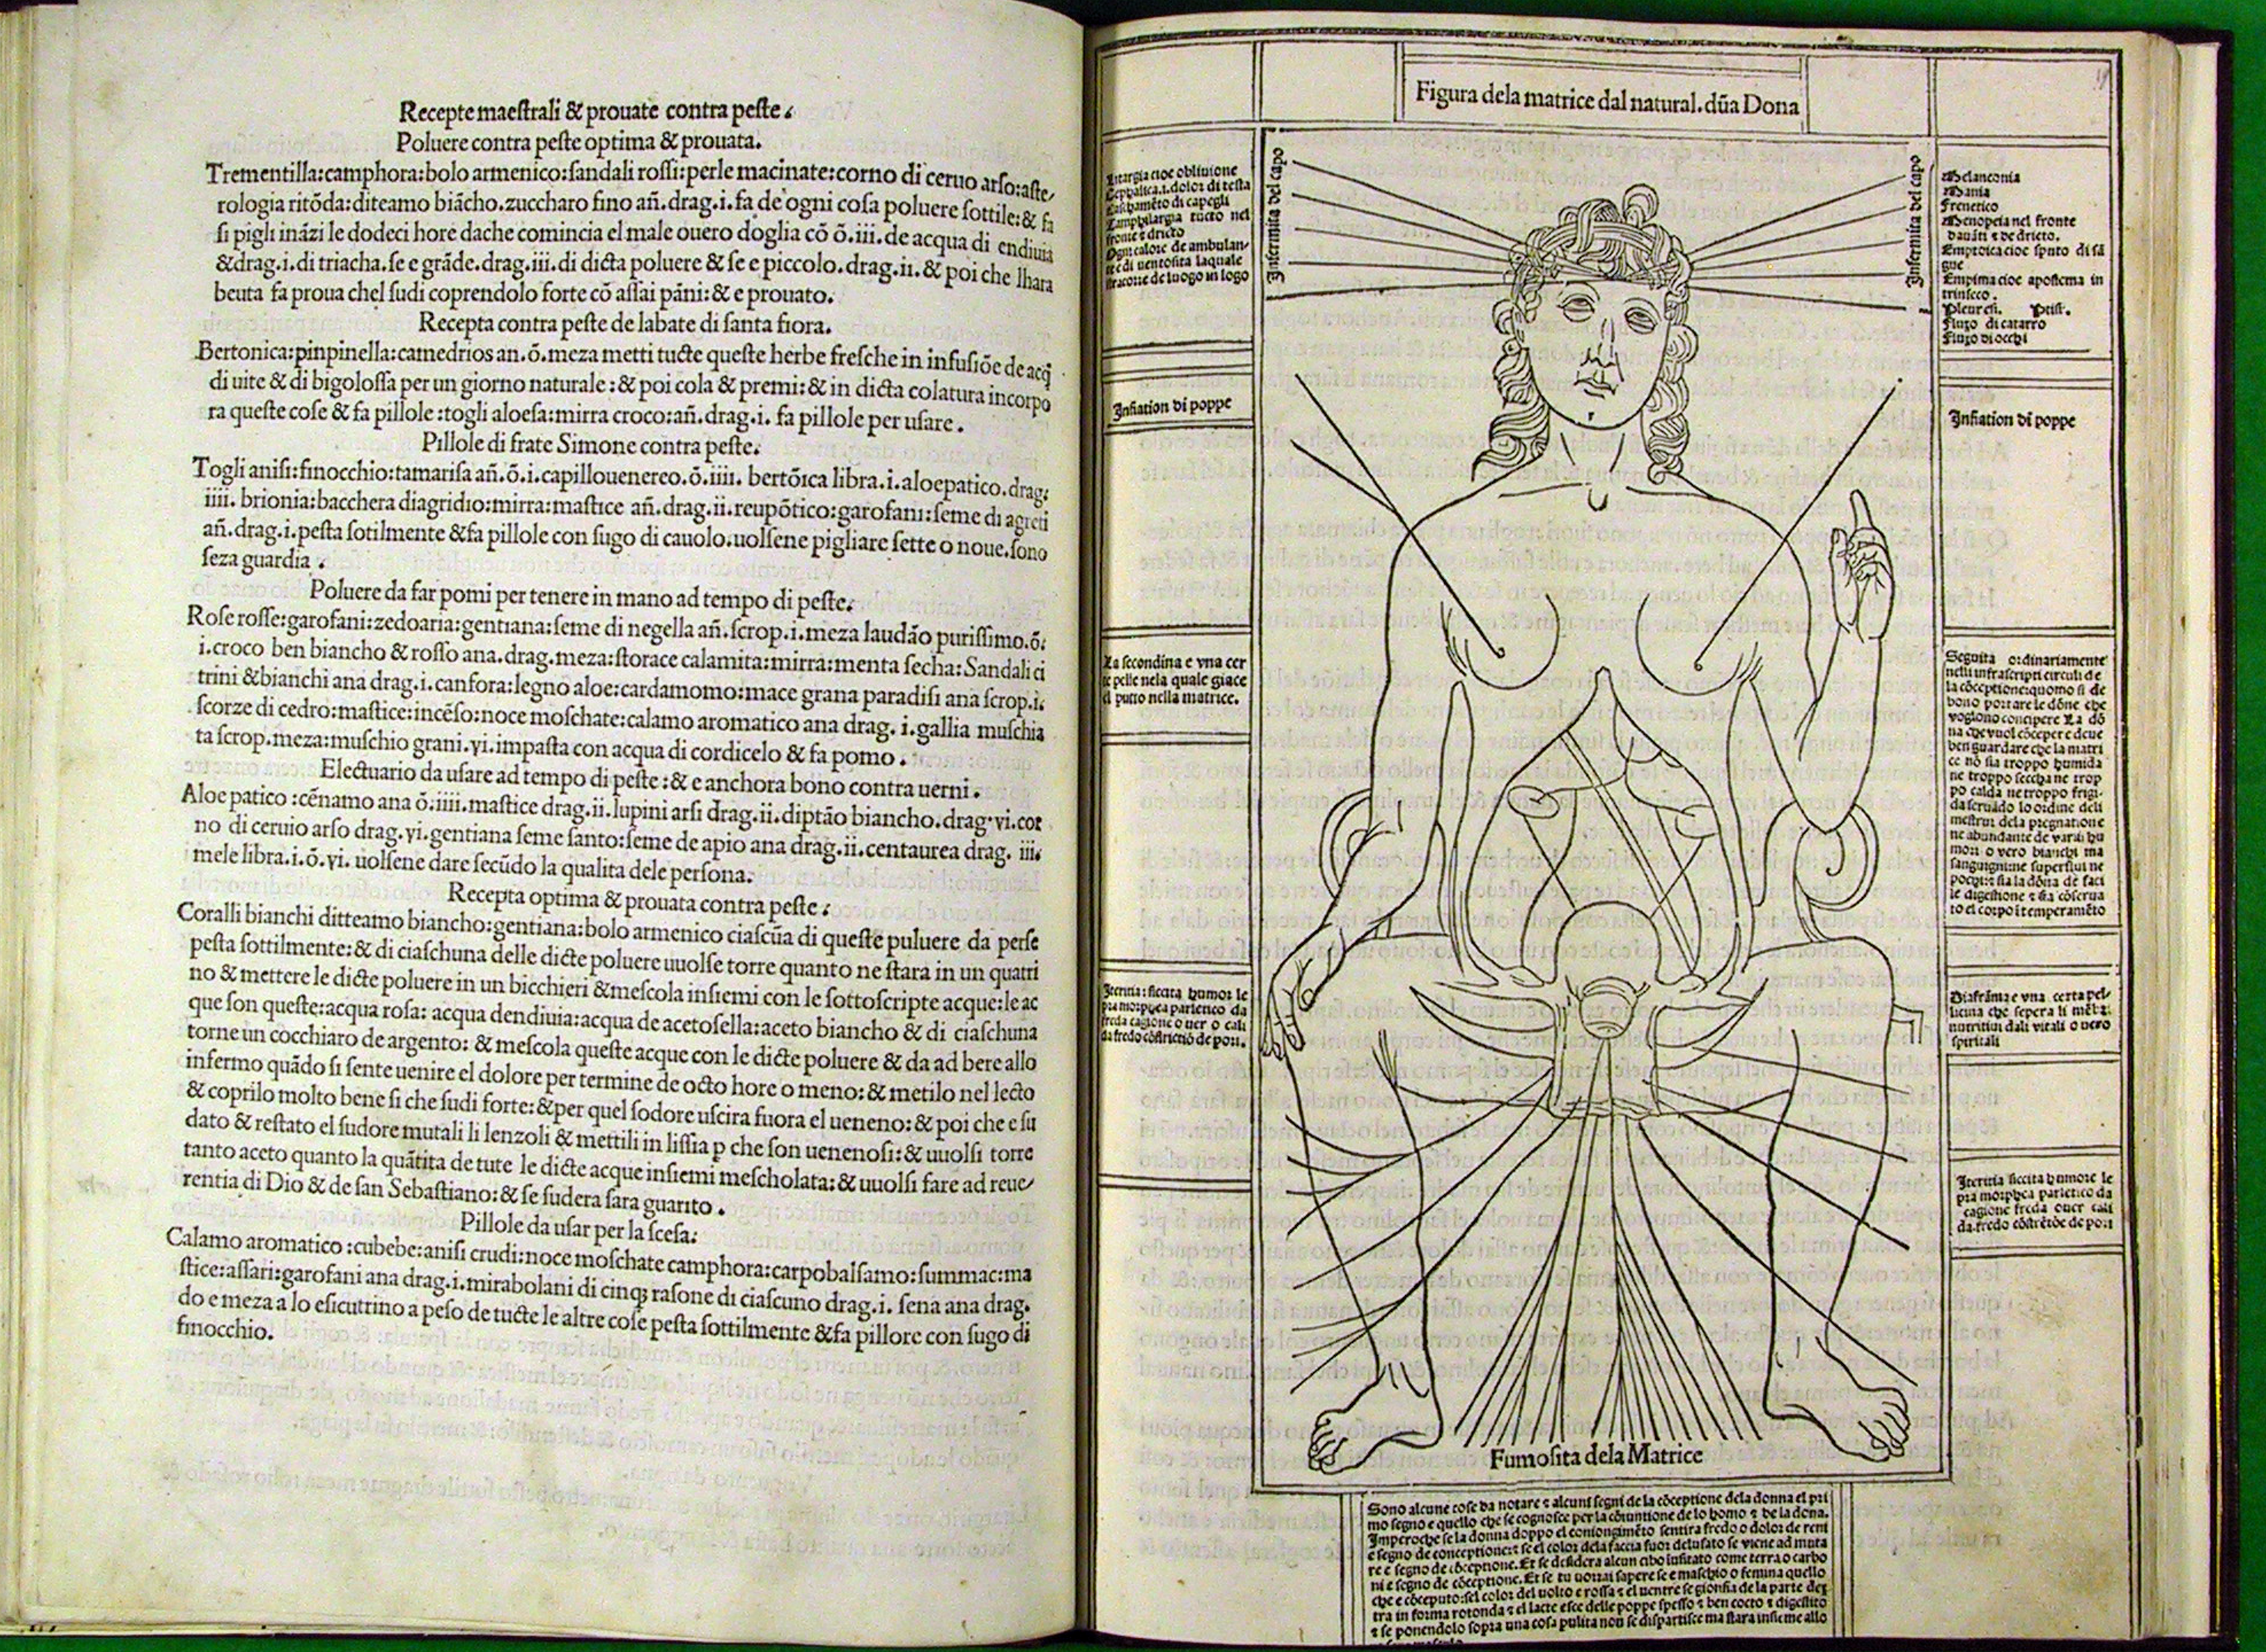 Recepte maestrali & prouate contra peste.
Poluere contra peste optima & prouata.
Trementilla:camphora:bolo armenico:sandali rossi:perle macinate:corno di ceruo arso:aste-
rologia ritōda:diteamo biācho.zuccharo fino an̄.drag.i.fa de ogni cosa poluere sottile:& fa
si pigli ināzi le dodeci hore dache comincia el male ouero doglia cō ō.iii.de acqua di endiuia
&drag.i.di triacha.se e grāde.drag.iii.di dicta poluere & se e piccolo.drag.ii.& poi che lhara
beuta fa proua chel sudi coprendolo forte cō assai pāni:& e prouato.
Recepta contra peste de labate di santa fiora.
Bertonica:pinpinella:camedrios an.ō.meza metti tucte queste herbe fresche in infusiōe de acq
di uite & di bigolossa per un giorno naturale:& poi cola & premi:& in dicta colatura incorpo
ra queste cose & fa pillole:togli aloesa:mirra croco:an̄.drag.i. fa pillole per usare.
Pillole di frate Simone contra peste.
Togli anisi:finocchio:tamarisa an̄.ō.i.capillouenereo.ō.iiii. bertōica libra.i.aloepatico.drag.
iiii. brionia:bacchera diagridio:mirra:mastice an̄.drag.ii.reupōtico:garofani:seme di agreti
an̄.drag.i.pesta sotilmente &fa pillole con sugo di cauolo.uolsene pigliare sette o noue.sono
seza guardia.
Poluere da far pomi per tenere in mano ad tempo di peste.
Rose rosse:garofani:zedoaria:gentiana:seme di negella an̄.scrop.i.meza laudāo purissimo.ō.
i.croco ben biancho & rosso ana.drag.meza:storace calamita:mirra:menta secha:Sandali ci
trini &bianchi ana drag.i.canfora:legno aloe:cardamomo:mace grana paradisi ana scrop.i.
scorze di cedro:mastice:incēso:noce moschate:calamo aromatico ana drag. i.gallia muschia
ta scrop.meza:muschio grani.vi.impasta con acqua di cordicelo & fa pomo.
Electuario da usare ad tempo di peste:& e anchora bono contra uerni.
Aloe patico:cēnamo ana ō.iiii.mastice drag.ii.lupini arsi drag.ii.diptāo biancho.drag.vi.cor
no di ceruio arso drag.vi.gentiana seme santo:seme de apio ana drag.ii.centaurea drag. iii.
mele libra.i.ō.vi. uolsene dare secūdo la qualita dele persona.
Recepta optima & prouata contra peste.
Coralli bianchi ditteamo biancho:gentiana:bolo armenico ciascūa di queste puluere da perse
pesta sottilmente:& di ciaschuna delle dicte poluere uuolse torre quanto ne stara in un quatri
no & mettere le dicte poluere in un bicchieri &mescola insiemi con le sottoscripte acque:le ac
que son queste:acqua rosa: acqua dendiuia:acqua de acetosella:aceto biancho & di ciaschuna
torne un cocchiaro de argento: & mescola queste acque con le dicte poluere & da ad bere allo
infermo quādo si sente uenire el dolore per termine de octo hore o meno:& metilo nel lecto
& coprilo molto bene si che sudi forte:&per quel sodore uscira fuora el ueneno:& poi che e su
dato & restato el sudore mutali li lenzoli & mettili in lissia p che son uenenosi:& uuolsi torre
tanto aceto quanto la quātita de tute le dicte acque insiemi mescholata:& uuolsi fare ad reue-
rentia di Dio & de san Sebastiano:& se sudera sara guarito.
Pillole da usar per la scesa:
Calamo aromatico:cubebe:anisi crudi:noce moschate camphora:carpobalsamo:summac:ma
stice:assari:garofani ana drag.i.mirabolani di cinq; rasone di ciascuno drag.i. sena ana drag.
do e meza a lo esicutrino a peso de tucte le altre cose pesta sottilmente &fa pillore con sugo di
finocchio.
Figura dela matrice dal natural.dūa Dona
Litargia cioe obliuione
Cephalica.i.dolor di testa
Cascamēto di capegli
tucto nel
fronte & drieto
Ogni calore de ambulan-
te & di uentosita laquale
stracorre de luogo in logo
Infirmita del capo
Infirmita del capo
Melanconia
Mania
Frenetico
Menopeia nel fronte
dauāti & de drieto.
Emptoica cioe sputo di sā
gue
Empima cioe apostema in
trinseco.
Pleuresi. Ptisi.
Fluxo di catarro
Fluxo di occhi
Infiation di poppe
Infiation di poppe
La secondina e vna cer
te pelle nela quale giace
el putto nella matrice.
Seguita ordinariamente
nelli infrascripti circuli de
la cōceptione:quomo si de
bono portare le dōne che
vogliono concipere La dō
na che vuol cōcepere deue
ben guardare che la matri
ce nō sia troppo humida
ne troppo seccha ne trop
po calda ne troppo frigi-
da seruādo lo ordine deli
mestrui dela pregnatione
ne abundante de varii hu
mori o vero bianchi ma
sanguigni:ne superflui ne
pochi:& sia la dōna de faci
le digestione & sia cōserua
to el corpo i temperamēto
Itericia siccita humor le
pra morphea parletico da
freda cagione o uer o cali
da fredo cōstrictiō de pori.
Diafrāma e vna certa pel-
licina che sepera li mēbri
nutritiui dali vitali o uero
spiritali
Itericia siccita humore le
pra morphea parletico da
cagione freda ouer cali
da fredo cōstrētiōe de pori
Fumosita dela Matrice
Sono alcune cose da notare & alcuni segni de la cōceptione dela donna el pri
mo segno e quello che se cognosce per la cōiuntione de lo homo & de la dona.
Imperoche se la donna doppo el coniongimēto sentira fredo o dolor de reni
e segno de conceptione:& se el color dela faccia fuor delusato se viene ad muta
re e segno de cōceptione. Et se desidera alcun cibo iusitato come terra o carbo
ni e segno de cōceptione. Et se tu uorrai sapere se e maschio o femina quello
che e cōceputo:sel color del uolto e rossa & el uentre se gionfia de la parte dex
tra in forma rotonda & el lacte esce delle poppe spesso & ben cocto & digestito
& se ponendolo sopra una cosa pulita non se dispartisce ma stara insieme allo